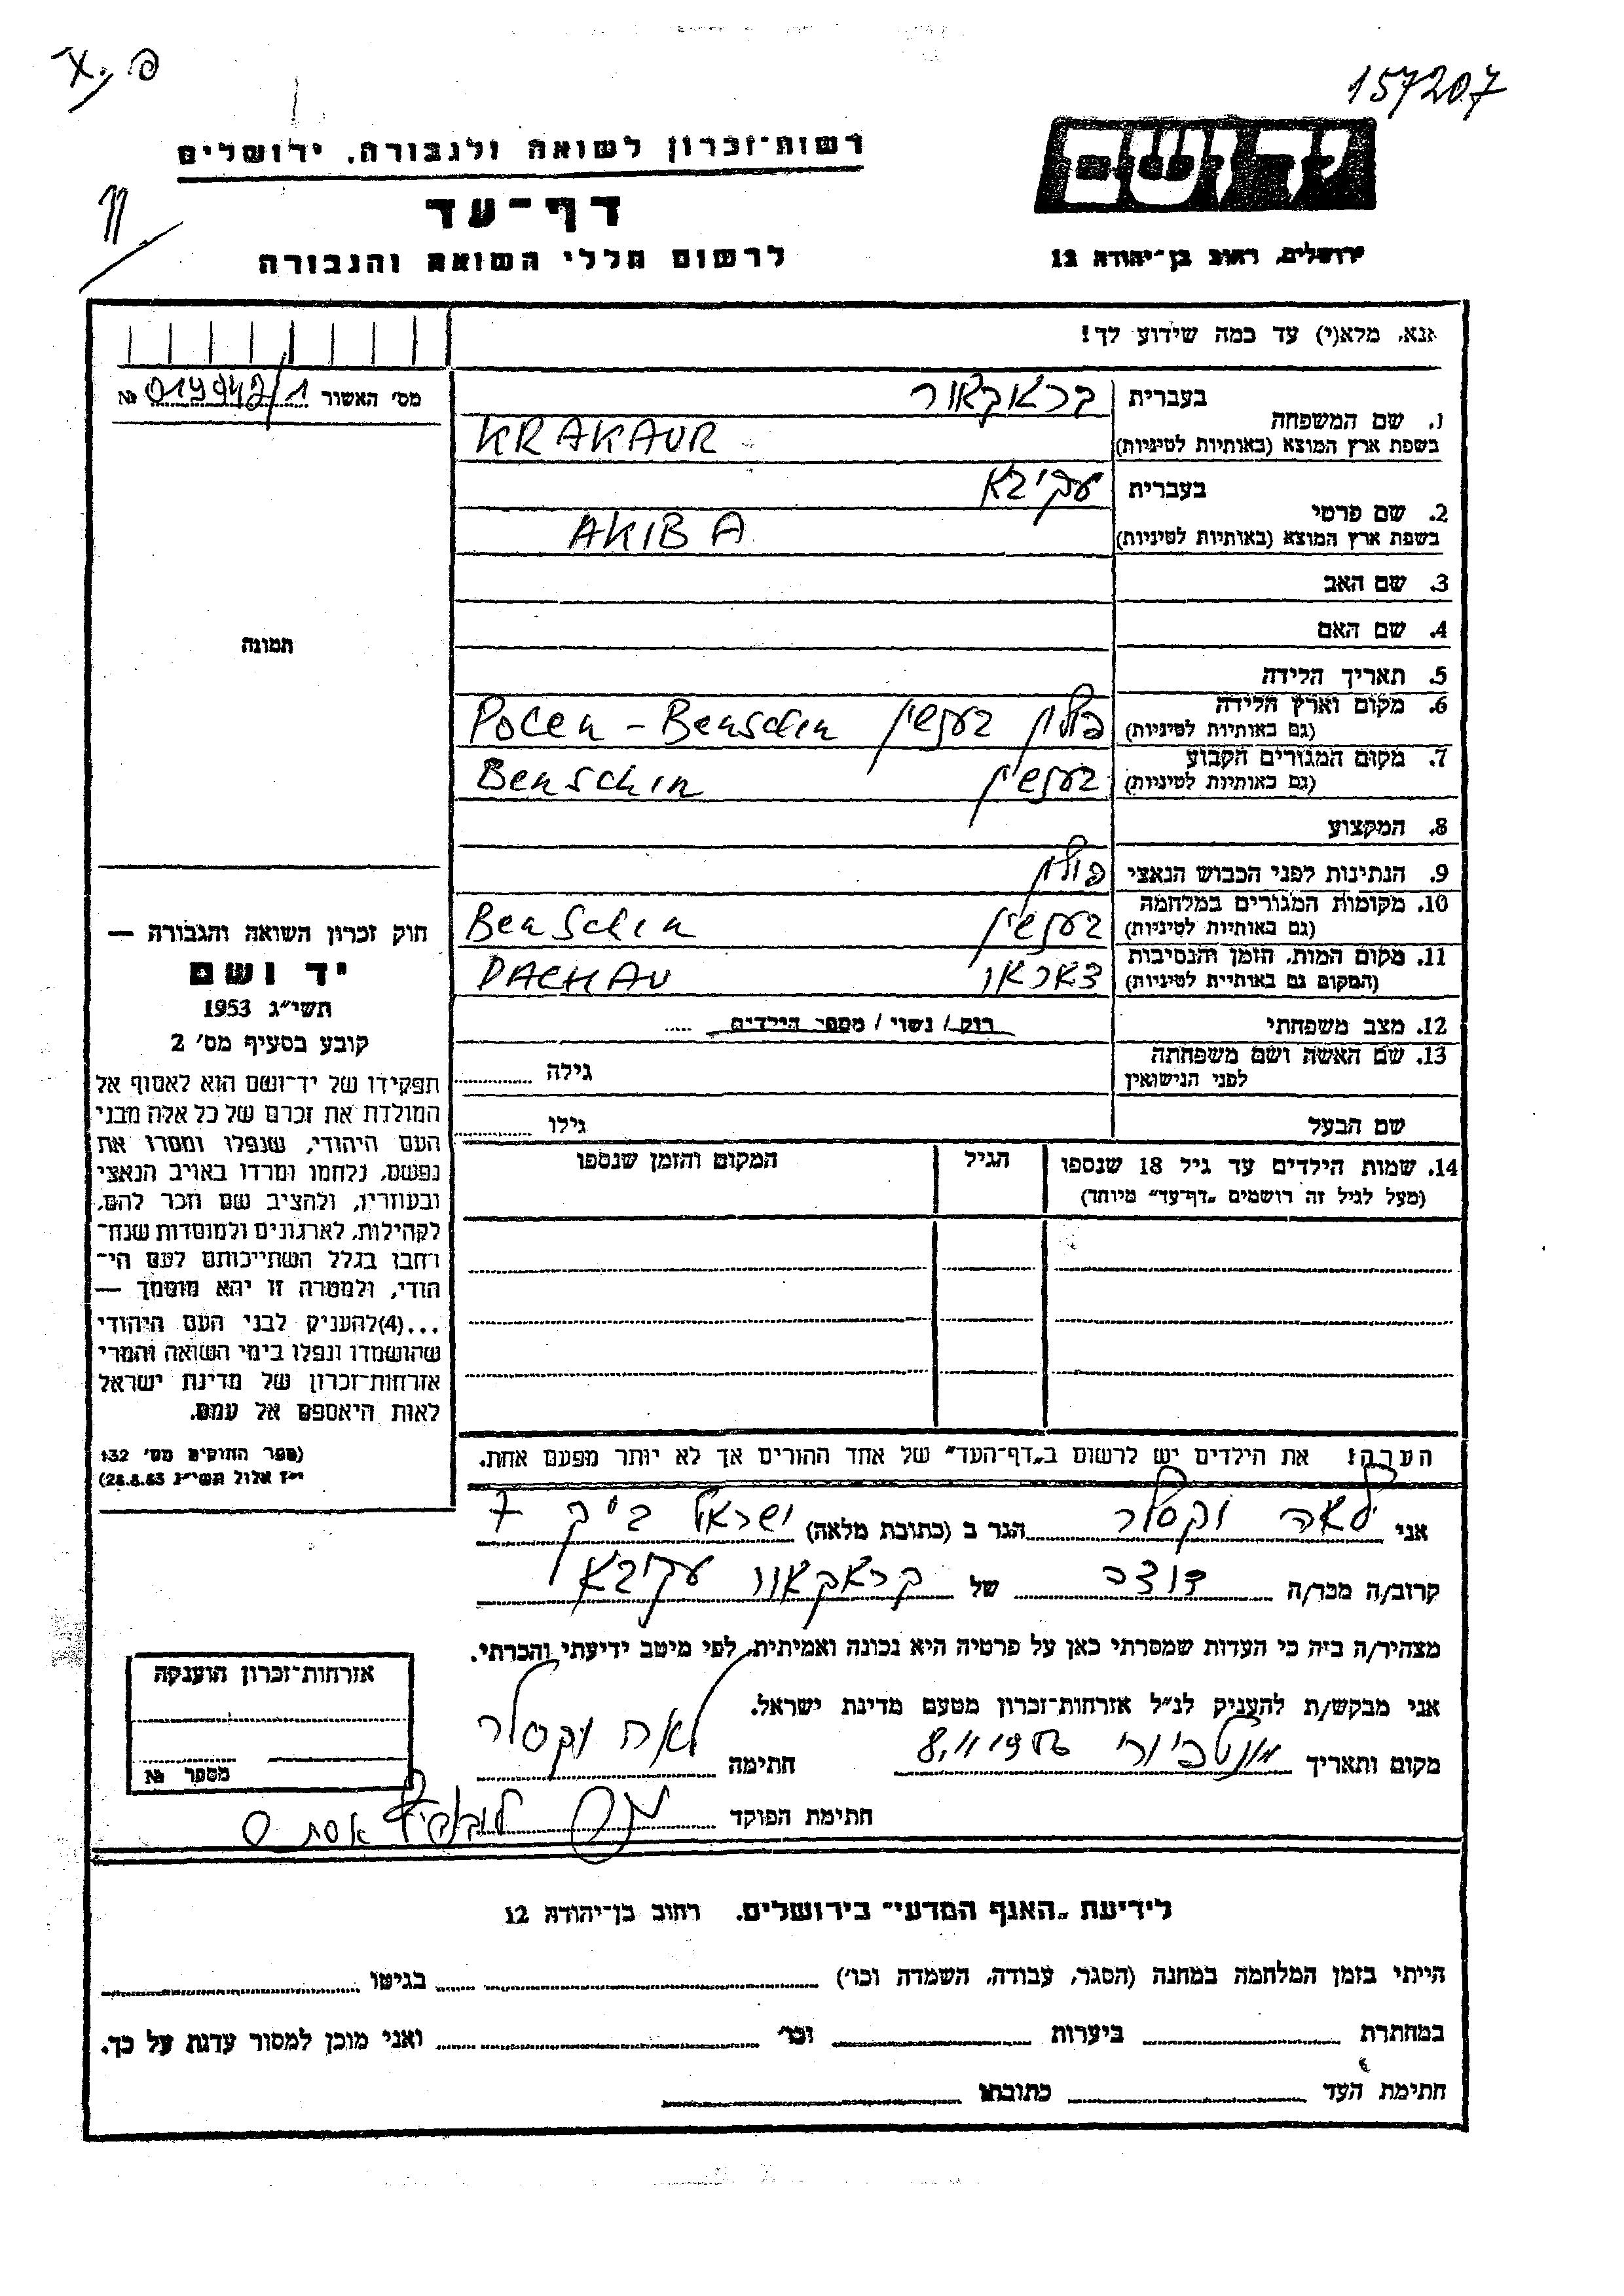 157207
רשות־זכרון לשואה ולגבורה, ירושלים
יד ושם
דף־עד
לרשום חללי השואה והגבורה
ירושלים, רחוב בן־יהודה 12
אנא, מלא(י) עד כמה שידוע לך!
מס׳ האשור № 019942/1
1. שם המשפחה
בעברית קראקאור
בשפת ארץ המוצא (באותיות לטיניות) KRAKAUR
2. שם פרטי
בעברית עקיבא
בשפת ארץ המוצא (באותיות לטיניות) AKIBA
3. שם האב
4. שם האם
5. תאריך הלידה
6. מקום וארץ הלידה
(גם באותיות לטיניות) פולין בענשין Polen - Benschin
7. מקום המגורים הקבוע
(גם באותיות לטיניות) בענשין Benschin
8. המקצוע
9. הנתינות לפני הכבוש הנאצי פולין
10. מקומות המגורים במלחמה
(גם באותיות לטיניות) בענשין Benschin
11. מקום המות, הזמן והנסיבות
(המקום גם באותיות לטיניות) דאכאו DACHAU
12. מצב משפחתי רוק/ נשוי/ מספר הילדים .....
13. שם האשה ושם משפחתה
לפני הנישואין
גילה
שם הבעל גילו
14. שמות הילדים עד גיל 18 שנספו
(מעל לגיל זה רושמים „דף־עד״ מיוחד)
הגיל
המקום והזמן שנספו
תמונה
חוק זכרון השואה והגבורה —
יד ושם
תשי״ג 1953
קובע בסעיף מס׳ 2
תפקידו של יד־ושם הוא לאסוף אל
המולדת את זכרם של כל אלה מבני
העם היהודי, שנפלו ומסרו את
נפשם, נלחמו ומרדו באויב הנאצי
ובעוזריו, ולהציב שם וזכר להם,
לקהילות, לארגונים ולמוסדות שנח־
רבו בגלל השתייכותם לעם הי־
הודי, ולמטרה זו יהא מוסמך —
...(4)להעניק לבני העם היהודי
שהושמדו ונפלו בימי השואה והמרי
אזרחות־זכרון של מדינת ישראל
לאות היאספם אל עמם.
(ספר החוקים מס׳ 132
י״ז אלול תשי״ג 28.8.53)
הערה: את הילדים יש לרשום ב„דף־העד״ של אחד ההורים אך לא יותר מפעם אחת.
אני לאה וקסלר הגר ב (כתובת מלאה) ישראל ביק 7
קרוב/ה מכר/ה דודה של קראקאור עקיבא
מצהיר/ה בזה כי העדות שמסרתי כאן על פרטיה היא נכונה ואמיתית, לפי מיטב ידיעתי והכרתי.
אני מבקש/ת להעניק לנ״ל אזרחות־זכרון מטעם מדינת ישראל.
מקום ותאריך מונטפיורי 8.11 1956 חתימה לאה וקסלר
חתימת הפוקד
אזרחות־זכרון הוענקה
מספר №
לידיעת „האגף המדעי״ בירושלים, רחוב בן־יהודה 12
הייתי בזמן המלחמה במחנה (הסגר, עבודה, השמדה וכו׳) בגיטו
במחתרת ביערות וכו׳ ואני מוכן למסור עדות על כך.
חתימת העד כתובתו